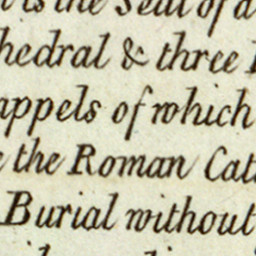 is the Seat of a
hedral & three
appels of which
the Roman Cat
Burial without